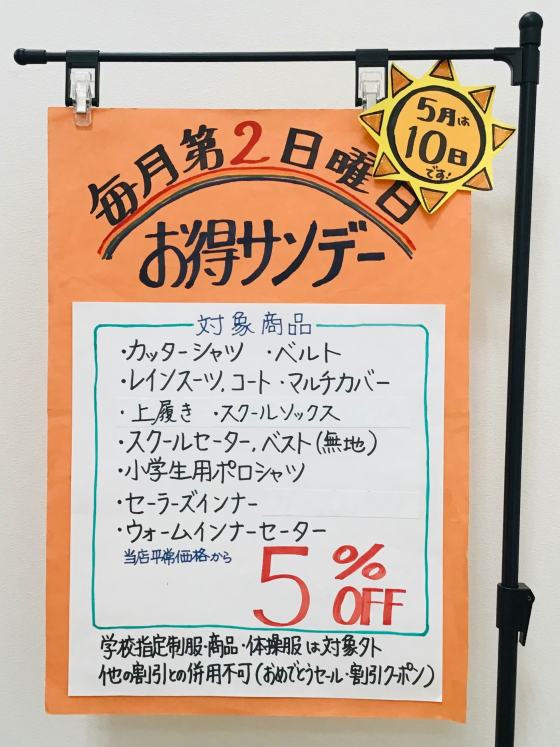 毎月第2日曜日
5月は
10日
です!
お得サンデー
対象商品
・カッターシャツ ・ベルト
・レインスーツ,コート・マルチカバー
・上履き ・スクールソックス
・スクールセーター,ベスト(無地)
・小学生用ポロシャツ
・セーラーズインナー
・ウォームインナーセーター
当店平常価格から
5%OFF
学校指定制服・商品・体操服は対象外
他の割引との併用不可(おめでとうセール・割引クーポン)